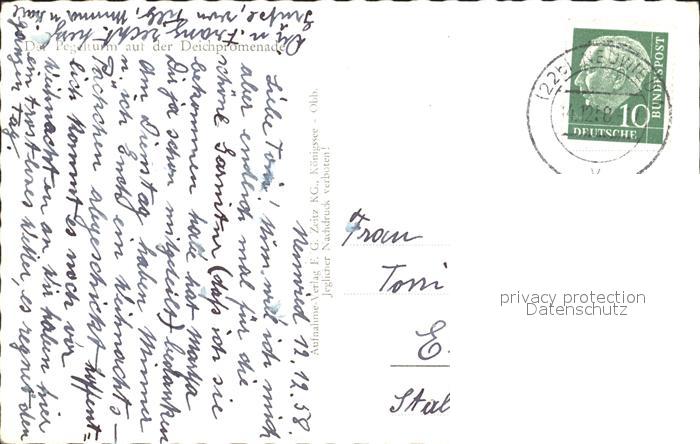 Der Pegelturm auf der Deichpromenade
Neuwied 12.12.58
Liebe Toni! Nun will ich mich
aber endlich mal für die
schöne Garnitur (daß ich sie
bekommen habe hat Martha
Dir ja schon mitgeteilt) bedanken
Am Dienstag haben Minna
u. ich Euch ein Weihnachts-
Päckchen abgeschickt hoffent=
lich kommt es noch vor
Weihnachten an. Wir haben hier
ein trostloses Wetter, es regnet den
ganzen Tag.
Dir u. Franz recht herzl.
Grüße, von
Aufnahme-Verlag E. G. Zeitz KG., Königssee - Obb.
Jeglicher Nachdruck verboten!
Frau
Toni
E.
Stal
(22b) NEUWIED
14.12.58
10
DEUTSCHE
BUNDESPOST
privacy protection
Datenschutz